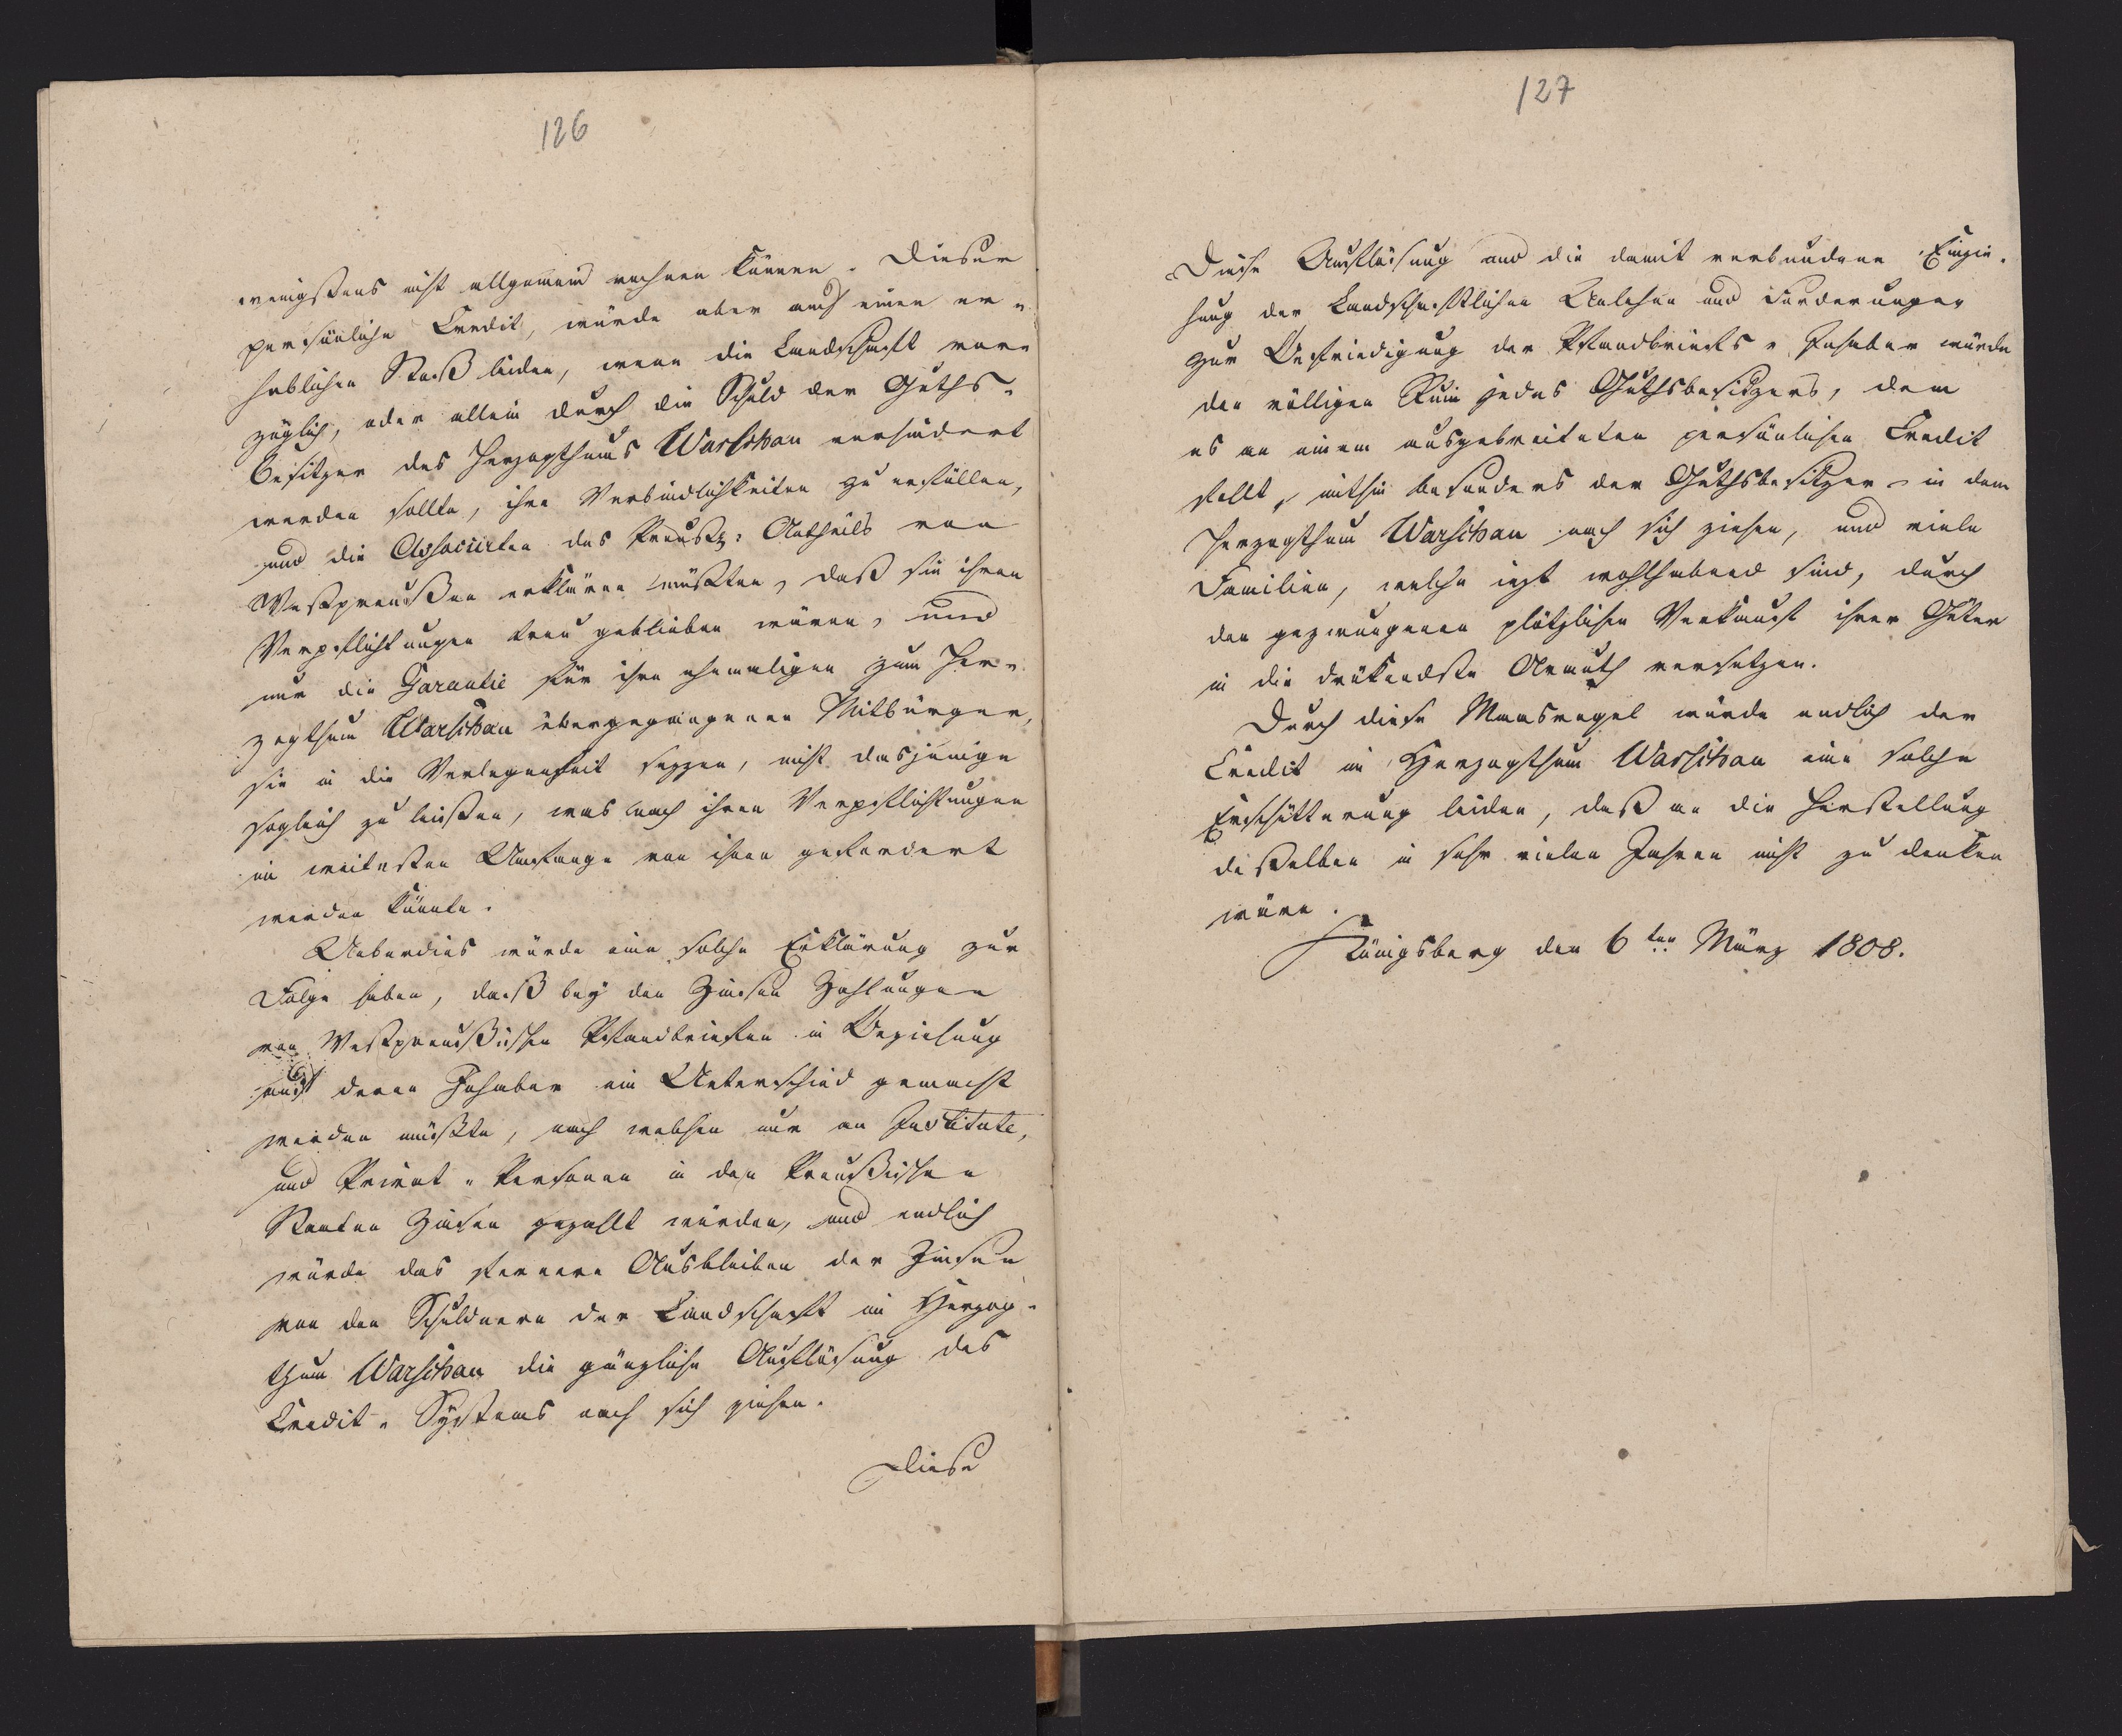 126
wenigstens nicht allgemein rechnen können. Dieser
persönliche Credit, würde aber auch einen er-
heblichen Stoß leiden, wenn die Landschaft vor-
züglich, oder allein durch die Schuld der Guths-
besitzer des Herzogthums Warschau verhindert
werden sollte, ihre Verbindlichkeiten zu erfüllen,
und die Associirten des Preuß: Antheils von
Westpreußen erklären müßten, daß sie ihren
Verpflichtungen treu geblieben wären, und
nur die Garantie für ihre ehemaligen zum Her-
zogthum Warschau übergegangenen Mitbürger,
sie in die Verlegenheit sezzen, nicht dasjenige
sogleich zu leisten, was nach ihren Verpflichtungen
im weitesten Umfange von ihnen gefordert
werden könnte.
Ueberdies würde eine solche Erklärung zur
Folge haben, daß bey den Zinsen Zahlungen
von Westpreußischen Pfandbriefen in Beziehung
auf deren Inhaber ein Unterschied gemacht
werden müßte, nach welchen nur an Institute,
und Privat-Personen in den Preußischen
Staaten Zinsen gezahlt würden, und endlich
würde das fernere Ausbleiben der Zinsen
von den Schuldnern der Landschaft im Herzog-
thum Warschau die gänzliche Auflösung des
Credit-Systems nach sich ziehen.
Diese
127
Diese Auflösung und die damit verbundene Einzie-
hung der Landschaftlichen Anlehen und Forderungen
zur Befriedigung der Pfandbriefs-Inhaber würde
den völligen Ruin jedes Guthsbesitzers, dem
es an einem ausgebreiteten persönlichen Credit
fehlt, mithin besonders der Guthsbesitzer in dem
Herzogthum Warschau nach sich ziehen, und viele
Familien, welche jezt wohlhabend sind, durch
den gezwungenen plötzlichen Verkauf ihrer Güter
in die drükendste Armuth versetzen.
Durch diese Maasregel würde endlich der
Credit im Herzogthum Warschau eine solche
Erschütterung leiden, daß an die Herstellung
desselben in sehr vielen Jahren nicht zu denken
wäre.
Königsberg den 6ten März 1808.